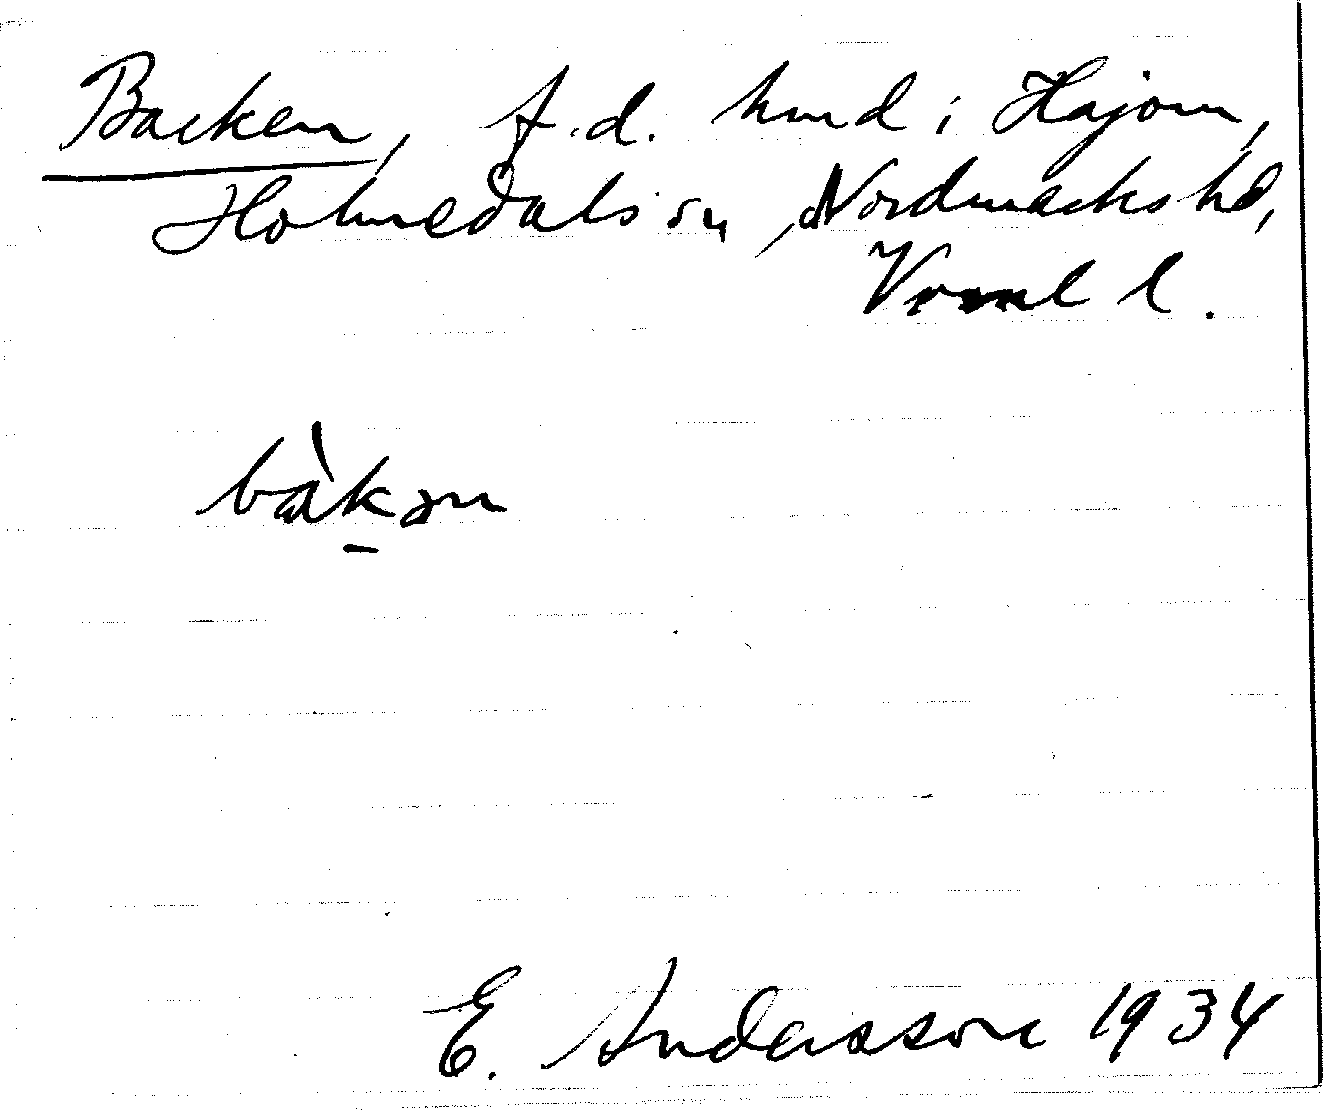 Backen, f.d. hmd i Hajom,
Holmedals sn, Nordmarks hd,
Vrml l.
bàkən
E. Andersson 1934